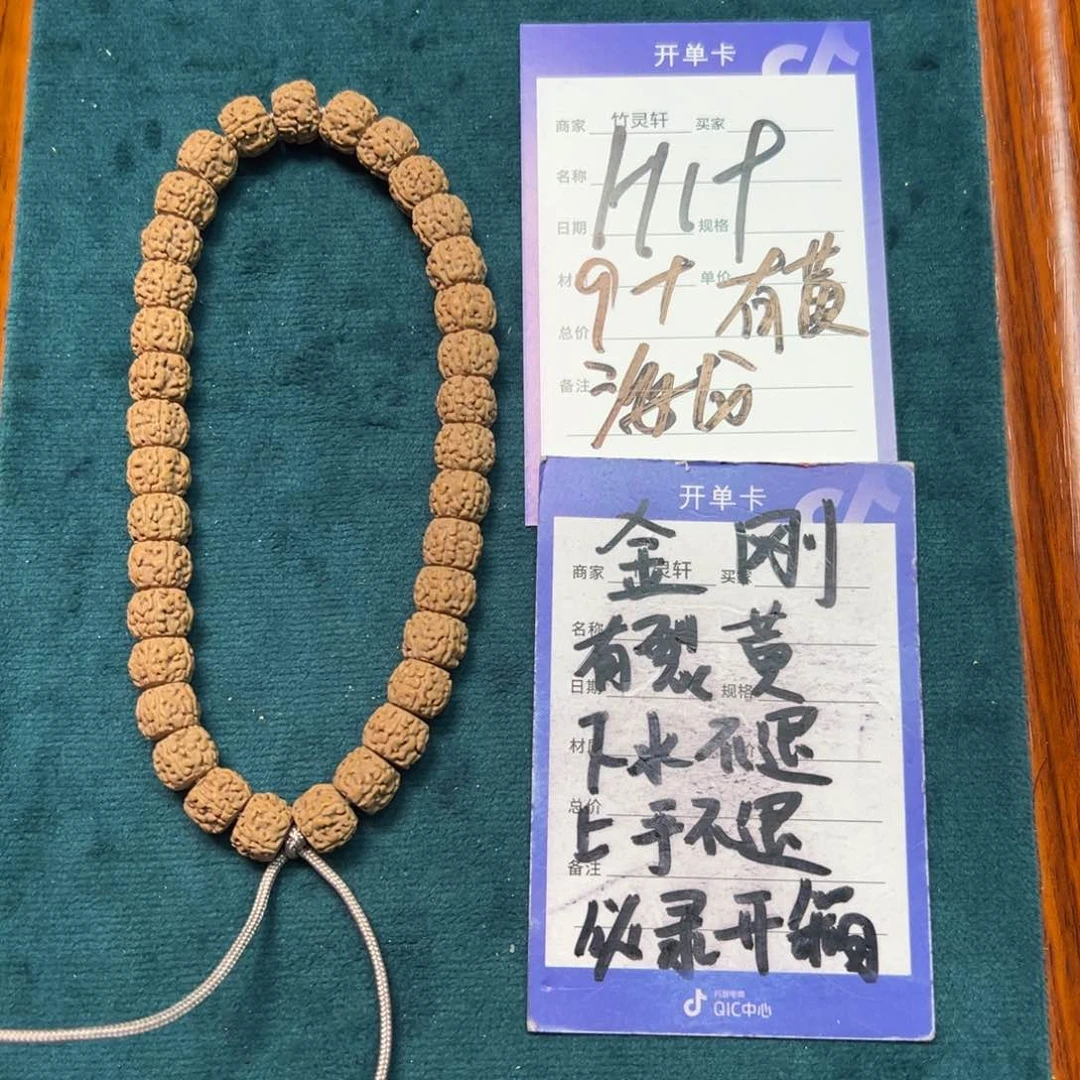 开单卡
商家 竹灵轩 买家
名称
日期 规格
单价 有黄
总价
备注
开单卡
金刚
商家 灵轩 买家
名称
有裂 黄
日期 规格
下水不退
总价
上手不退
备注
必录开箱
抖音电商
QIC中心